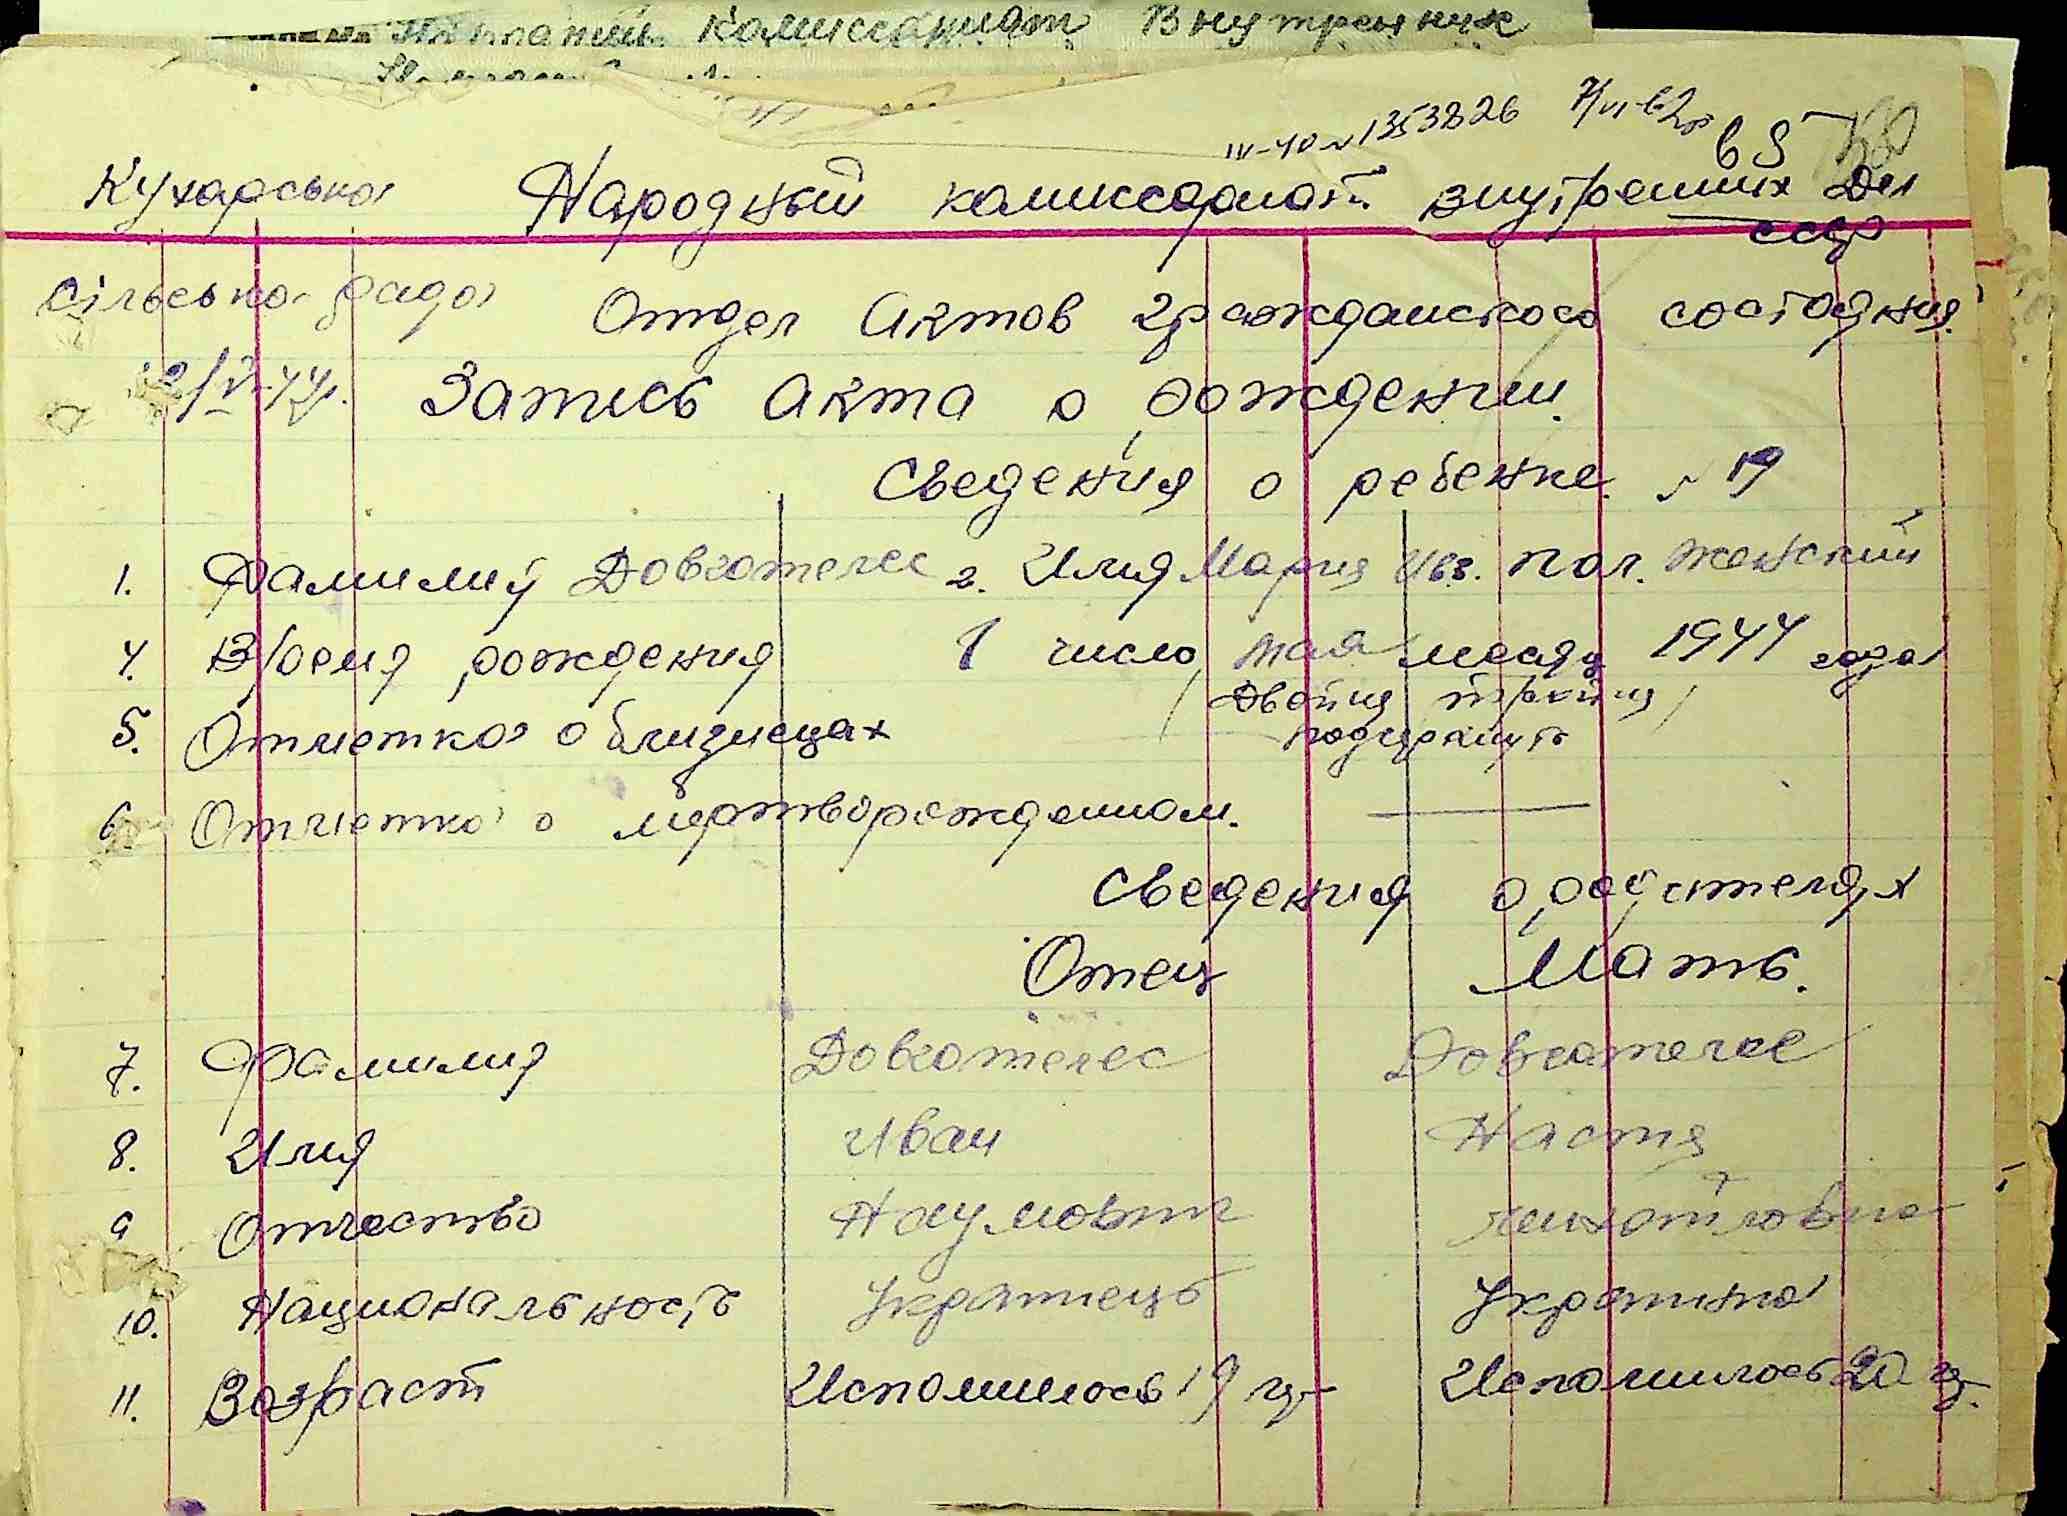 Комиссариат Внутренних
IV-40 № 1353826 7/VI-62г
65
Кухарська Народный комиссариат внутренних Дел
ссср
сільська рада Отдел Актов гражданского состояния.
2/V-44р. Запись Акта о рождении.
Сведения о ребенке. № 19
1. Фамилия Довготелес 2. Имя Мария Ив. 3. пол. женский
4. Время рождения 1 число мая месяц 1944 года
5. Отметка о близнецах (Двойня тройня)
подчеркнуть
6. Отметка о мертворожденном. ———
Сведения о родителях
Отец Мать.
7. Фамилия Довготелес Довготелес
8. Имя Иван Настя
9 Отчество Наумович
10. Национальность Украинець Украинка
11. Возраст Исполнилось 19 г. Исполнилось 20 г.